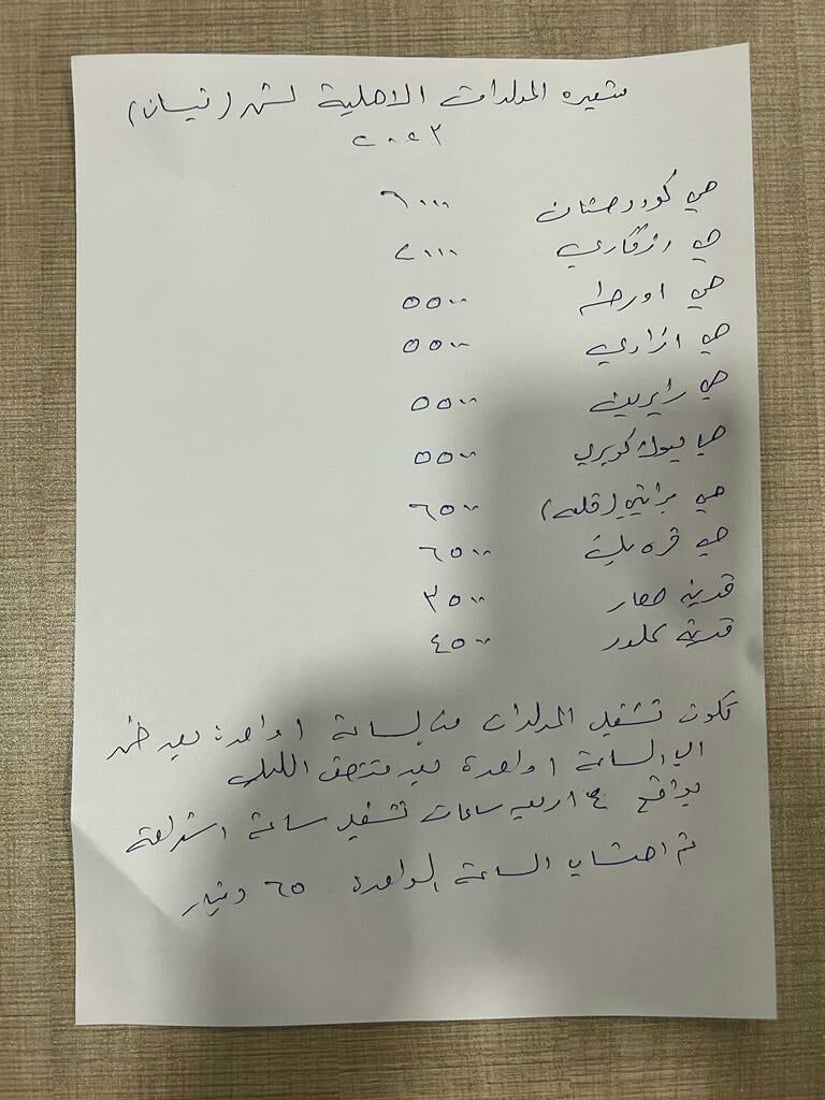 تسعيره المولدات الاهلية لشهر (نيسان)
٢٠٢٣
حي كوردستان ٦٠٠٠
حي رزكاري ٧٠٠٠
حي اورطه ٥٥٠٠
حي ازادي ٥٥٠٠
حي رابرين ٥٥٠٠
حي كوبري ٥٥٠٠
حي برايتي (قلعه) ٦٥٠٠
حي قره بلغ ٦٥٠٠
قرية حصار ٣٥٠٠
قرية كلور ٤٥٠٠
تكون تشغيل المولدات من لساعة ١ واحدة بعد ظهر
الى الساعة ١ واحدة بعد منتصف الليل
بواقع ٤ اربعه ساعات تشغيل ساعة استراحة
تم احتساب الساعة الواحدة ٦٥ دينار